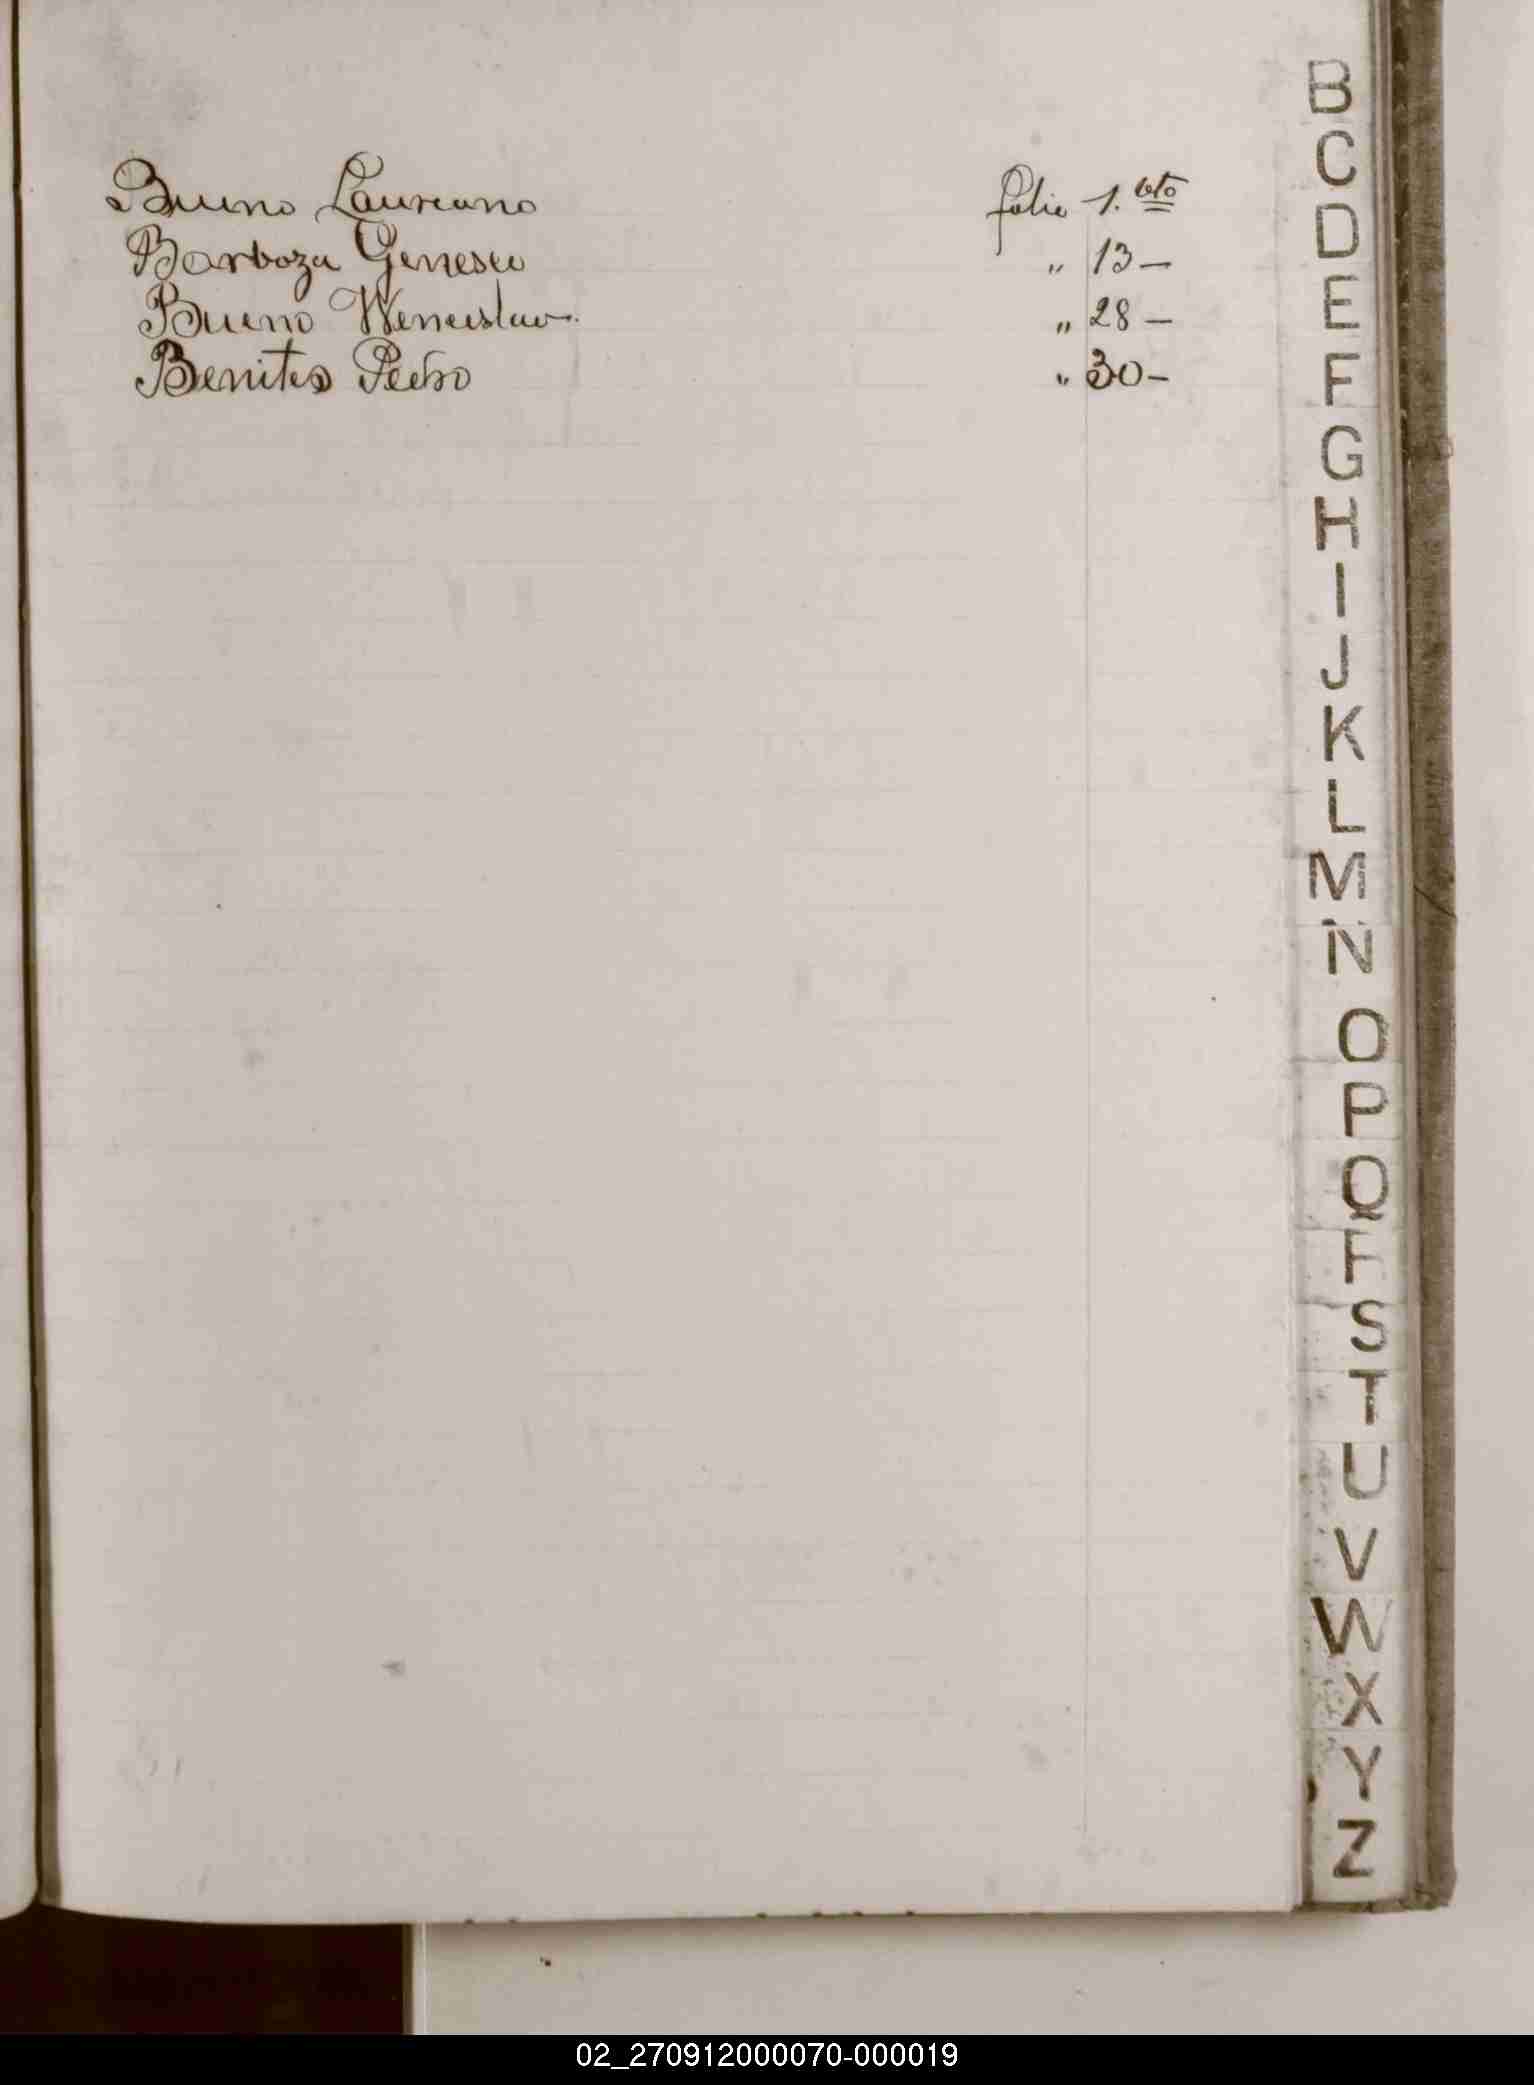 Bueno Laureano folio 1. vto
Barboza Genesco " 13 —
Bueno Wenceslao. " 28 —
Benites Pedro " 30 —
B
C
D
E
F
G
H
I
J
K
L
M
N
O
P
Q
S
T
U
V
W
X
Y
Z
02_270912000070-000019